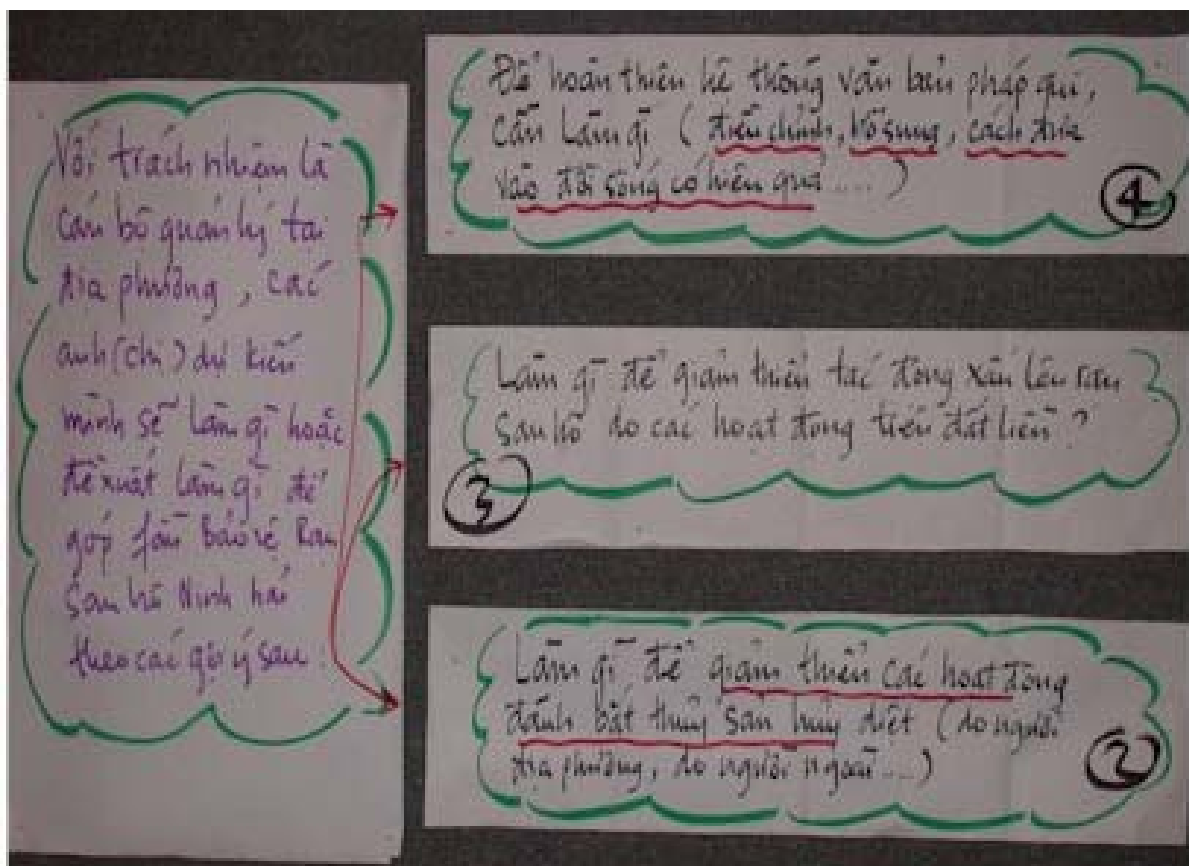 Với trách nhiệm là
cán bộ quản lý tại
địa phương, các
anh (chị) dự kiến
mình sẽ làm gì hoặc
đề xuất làm gì để
góp fần bảo vệ Rạn
San hô Ninh hải
theo các gợi ý sau:
Để hoàn thiện hệ thống văn bản pháp qui,
cần làm gì (điều chỉnh, bổ sung, cách đưa
vào đời sống có hiệu quả .....)
4
Làm gì để giảm thiểu tác động xấu lên rạn
san hô do các hoạt động trên đất liền?
3
Làm gì để giảm thiểu các hoạt động
đánh bắt thủy sản hủy diệt (do người
địa phương, do người ngoài ....)
2